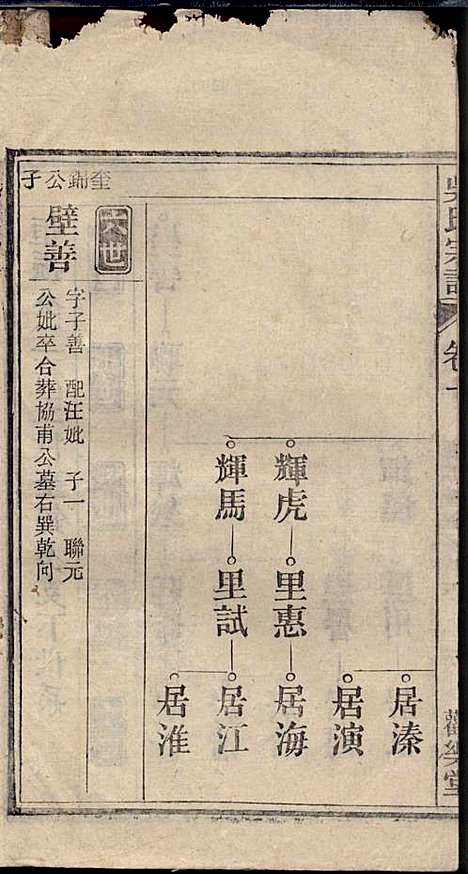 吳氏宗譜
卷一
觀樂堂
輝虎 里惠 居海
居演 居溱
輝馬 里試 居江
居淮
六世
奎錦公子
璧善
字子善 配汪妣 子一 聯元
公妣卒合葬協甫公墓右巽乾向